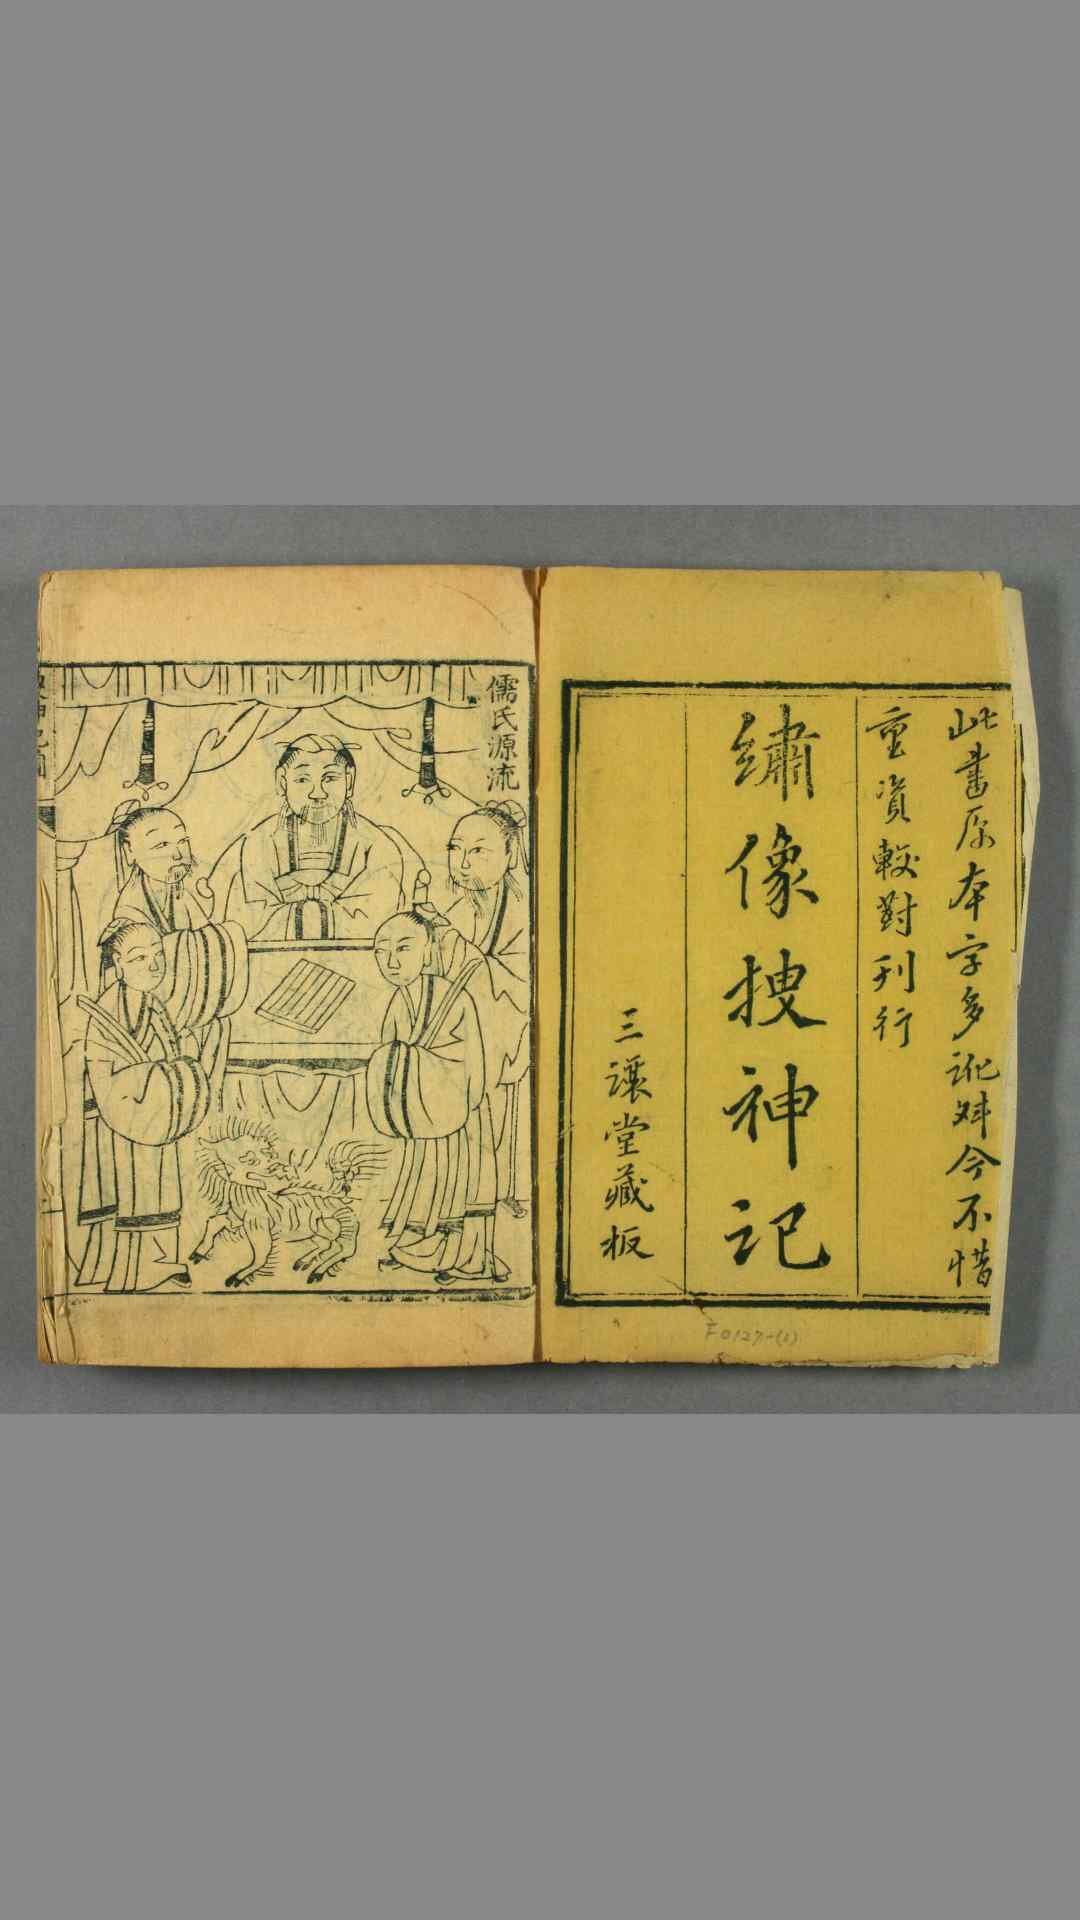 此書原本字多訛舛今不惜
重資較對刊行
繡像搜神記
三讓堂藏板
F0127-(1)
儒氏源流